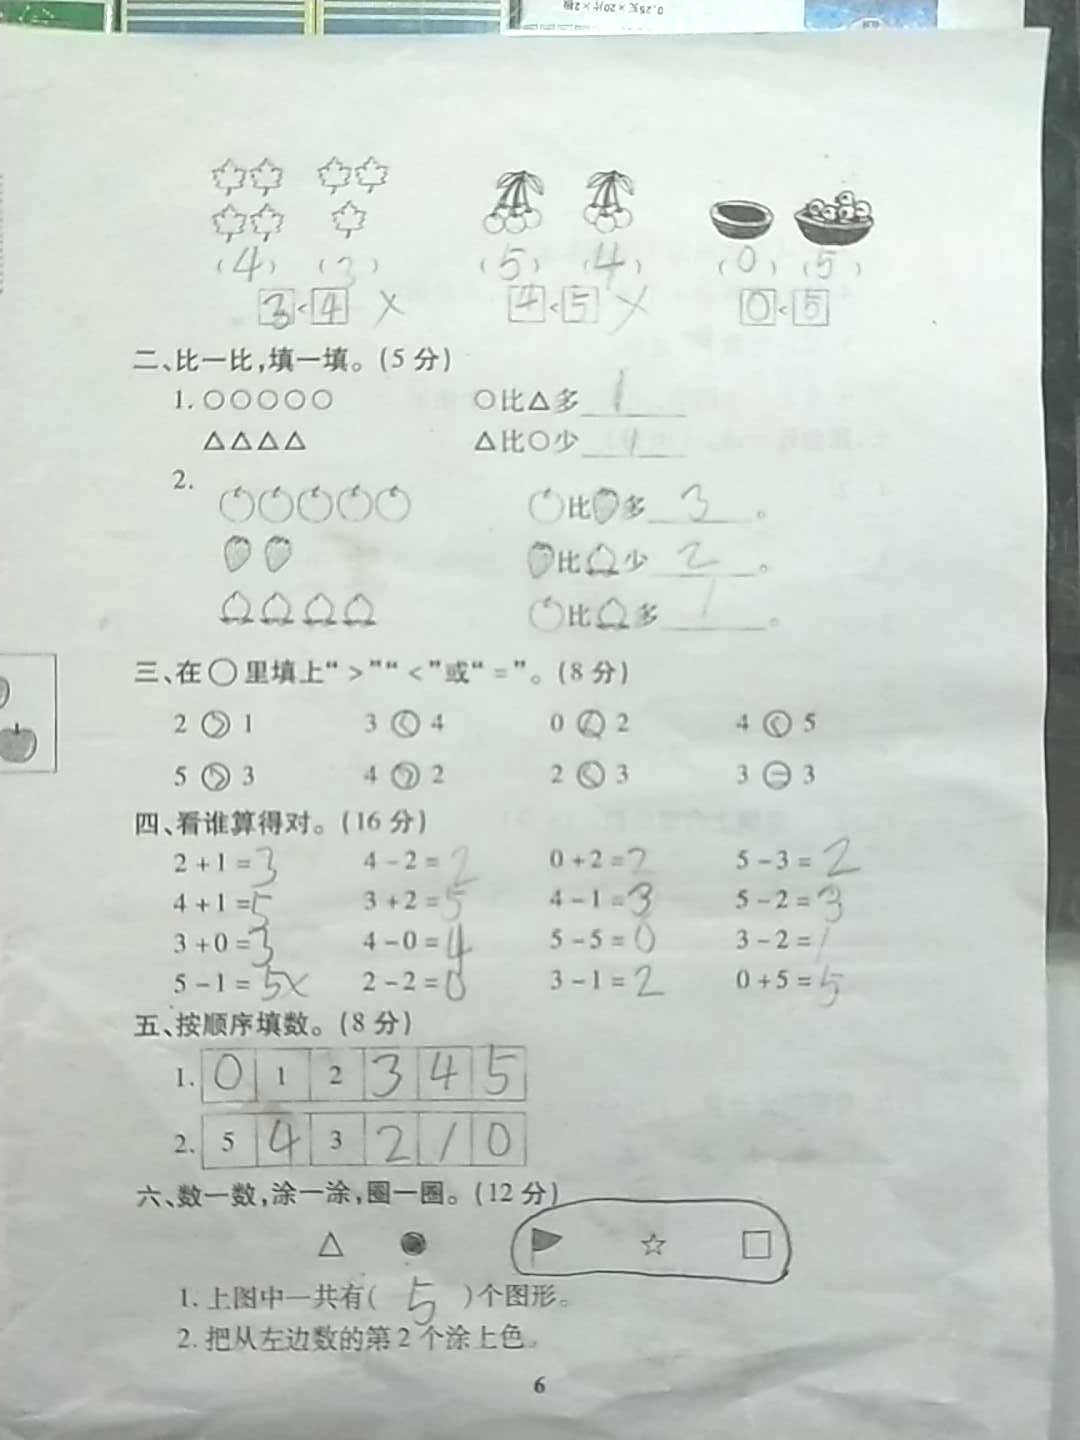 0.25克×20片×2板
(4) (3) (5) (4) (0) (5)
3<4 × 4<5 × 0<5
二、比一比,填一填。(5分)
1. ○○○○○ ○比△多 1
△△△△ △比○少 1
2.
比 多 3 。
比 少 2 。
比 多 1 。
三、在○里填上“>”“<”或“=”。(8分)
2 > 1 3 < 4 0 < 2 4 < 5
5 > 3 4 > 2 2 < 3 3 = 3
四、看谁算得对。(16分)
2+1=3 4-2=2 0+2=2 5-3=2
4+1=5 3+2=5 4-1=3 5-2=3
3+0=3 4-0=4 5-5=0 3-2=1
5-1=5× 2-2=0 3-1=2 0+5=5
五、按顺序填数。(8分)
1. 0 1 2 3 4 5
2. 5 4 3 2 1 0
六、数一数,涂一涂,圈一圈。(12分)
1. 上图中一共有( 5 )个图形。
2. 把从左边数的第2个涂上色。
6